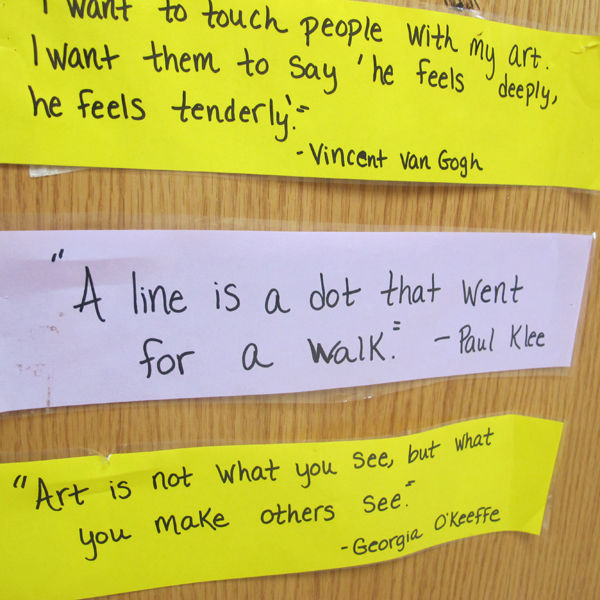 I want to touch people with my art.
I want them to say 'he feels deeply,
he feels tenderly'."
-Vincent van Gogh
"A line is a dot that went
for a walk." - Paul Klee
"Art is not what you see, but what
you make others see."
-Georgia O'Keeffe